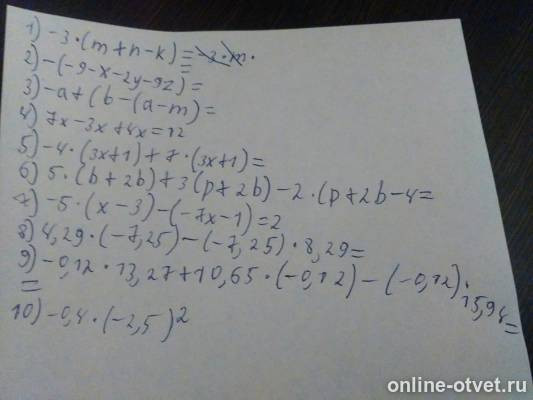 1) -3·(m+n-k)= -3·m·
2) -(-9-x-2y-9z)=
3) -a+(b-(a-m)=
4) 7x-3x+4x=12
5) -4·(3x+1)+7·(3x+1)=
6) 5·(b+2b)+3(p+2b)-2·(p+2b-4=
7) -5·(x-3)-(-7x-1)=2
8) 4,29·(-7,25)-(-7,25)·8,29=
9) -0,12·13,27+10,65·(-0,12)-(-0,12)·
15,94=
=
10) -0,4·(-2,5)²
online-otvet.ru